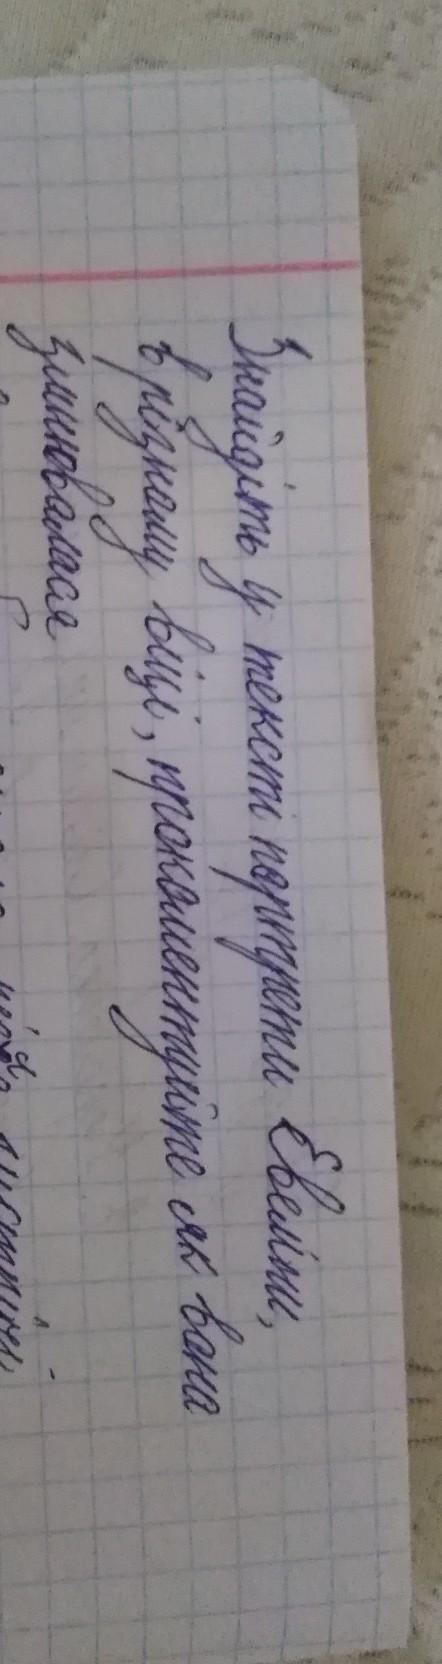 Знайдіть у тексті портрети Евеліни,
в різному віці, прокоментуйте як вона
змінювалася